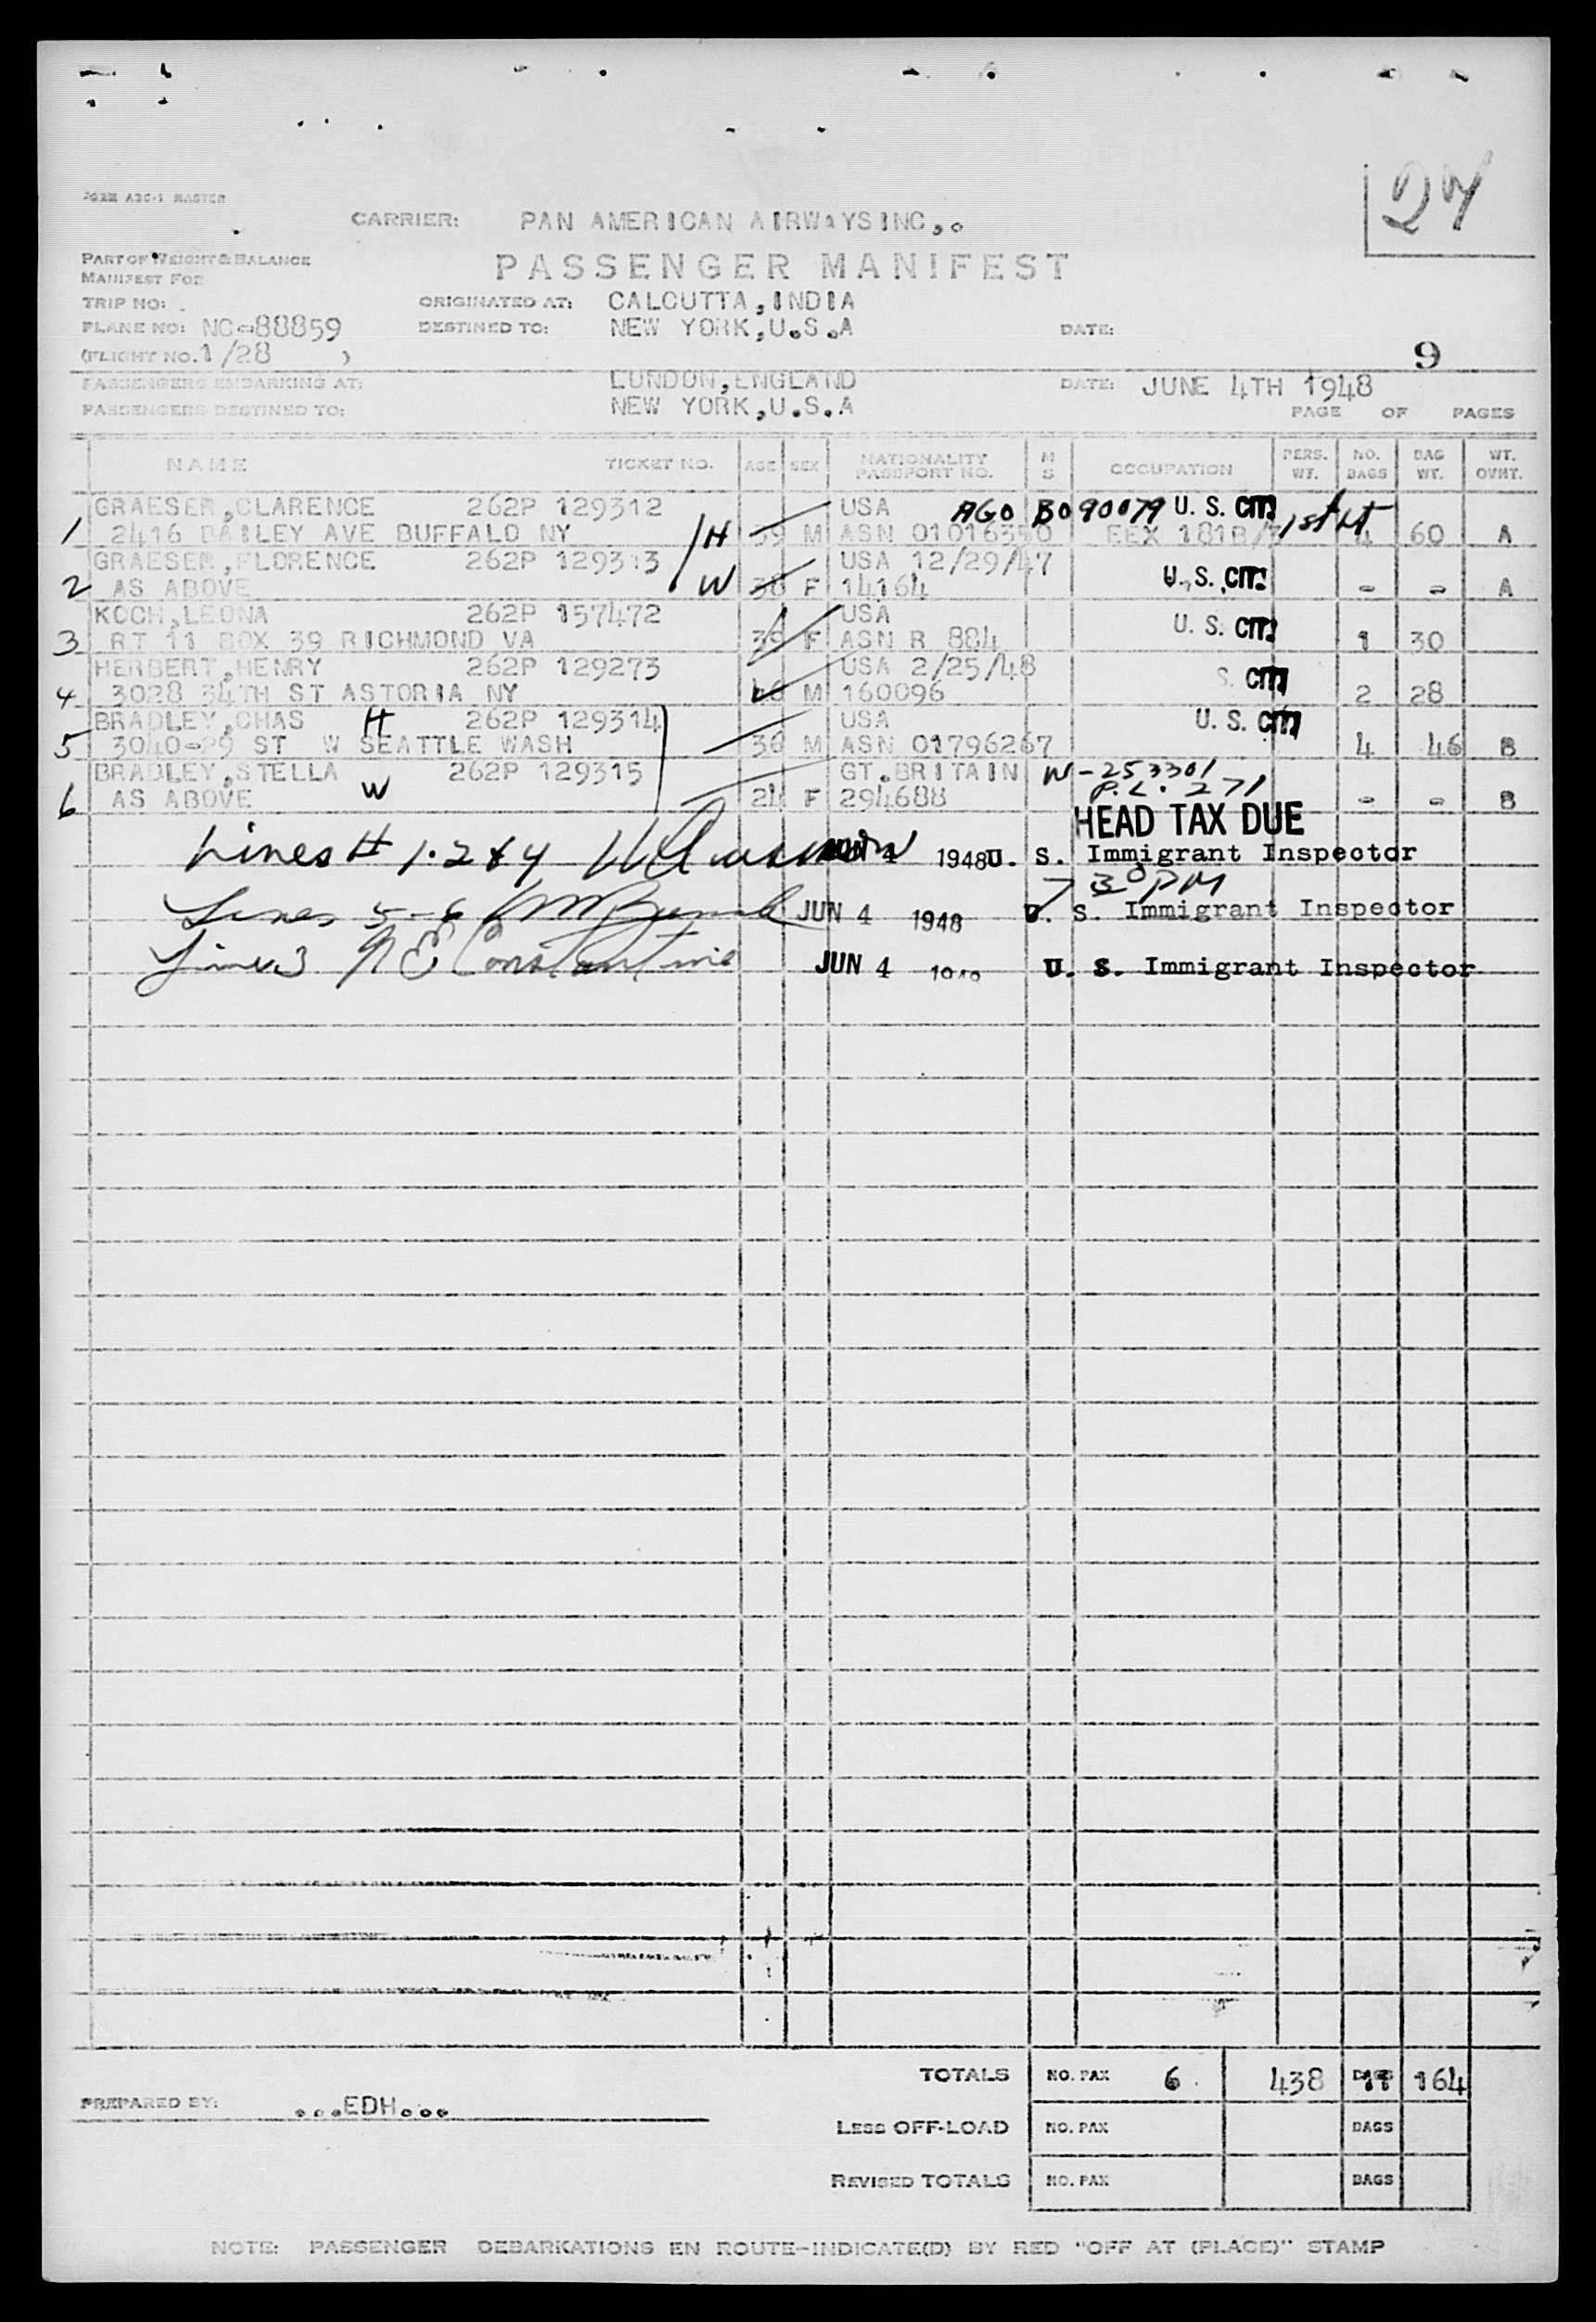 27
FORM ABC-1 MASTER
CARRIER: PAN AMERICAN AIRWAYS INC,.
PART OF WEIGHT & BALANCE
MANIFEST FOR
PASSENGER MANIFEST
TRIP NO:
ORIGINATED AT: CALCUTTA,INDIA
PLANE NO: NC-88859
DESTINED TO: NEW YORK,U.S.A
DATE:
(FLIGHT NO. 1/28 )
9
PASSENGERS EMBARKING AT: LONDON,ENGLAND
DATE: JUNE 4TH 1948
PASSENGERS DESTINED TO: NEW YORK,U.S.A
PAGE OF PAGES
NAME TICKET NO. AGE SEX NATIONALITY PASSPORT NO. M S OCCUPATION PERS. WT. NO. BAGS BAG WT. WT. OVHT.
GRAESER,CLARENCE 262P 129312 USA AGO B090079 U. S. CIT.
1 2416 BAILEY AVE BUFFALO NY H 39 M ASN 01016390 EEX 181B/ 1st Lt 4 60 A
GRAESER,FLORENCE 262P 129313 USA 12/29/47
2 AS ABOVE W 38 F 14164 U. S. CIT. - - A
KOCH,LEONA 262P 157472 USA
3 RT 11 BOX 39 RICHMOND VA 39 F ASN R 884 U. S. CIT. 1 30
HERBERT,HENRY 262P 129273 USA 2/25/48
4 3028 34TH ST ASTORIA NY 46 M 160096 S. CIT. 2 28
BRADLEY,CHAS H 262P 129314 USA U. S. CIT.
5 3040-29 ST W SEATTLE WASH 36 M ASN 01796267 4 46 B
BRADLEY,STELLA 262P 129315 GT.BRITAIN W-253301
P.L. 271
6 AS ABOVE W 24 F 294688 - - B
HEAD TAX DUE
Lines # 1.2 & 4 JUN 4 1948 U. S. Immigrant Inspector
7 30 PM
Lines 5-6 JUN 4 1948 U. S. Immigrant Inspector
Line 3 N E Constantine JUN 4 1948 U. S. Immigrant Inspector
TOTALS NO. PAX 6 438 BAGS 11 164
PREPARED BY: ...EDH...
LESS OFF-LOAD NO. PAX BAGS
REVISED TOTALS NO. PAX BAGS
NOTE: PASSENGER DEBARKATIONS EN ROUTE-INDICATE(D) BY RED "OFF AT (PLACE)" STAMP